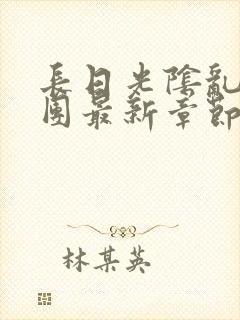 長日光陰亂
團最新章節
林某英